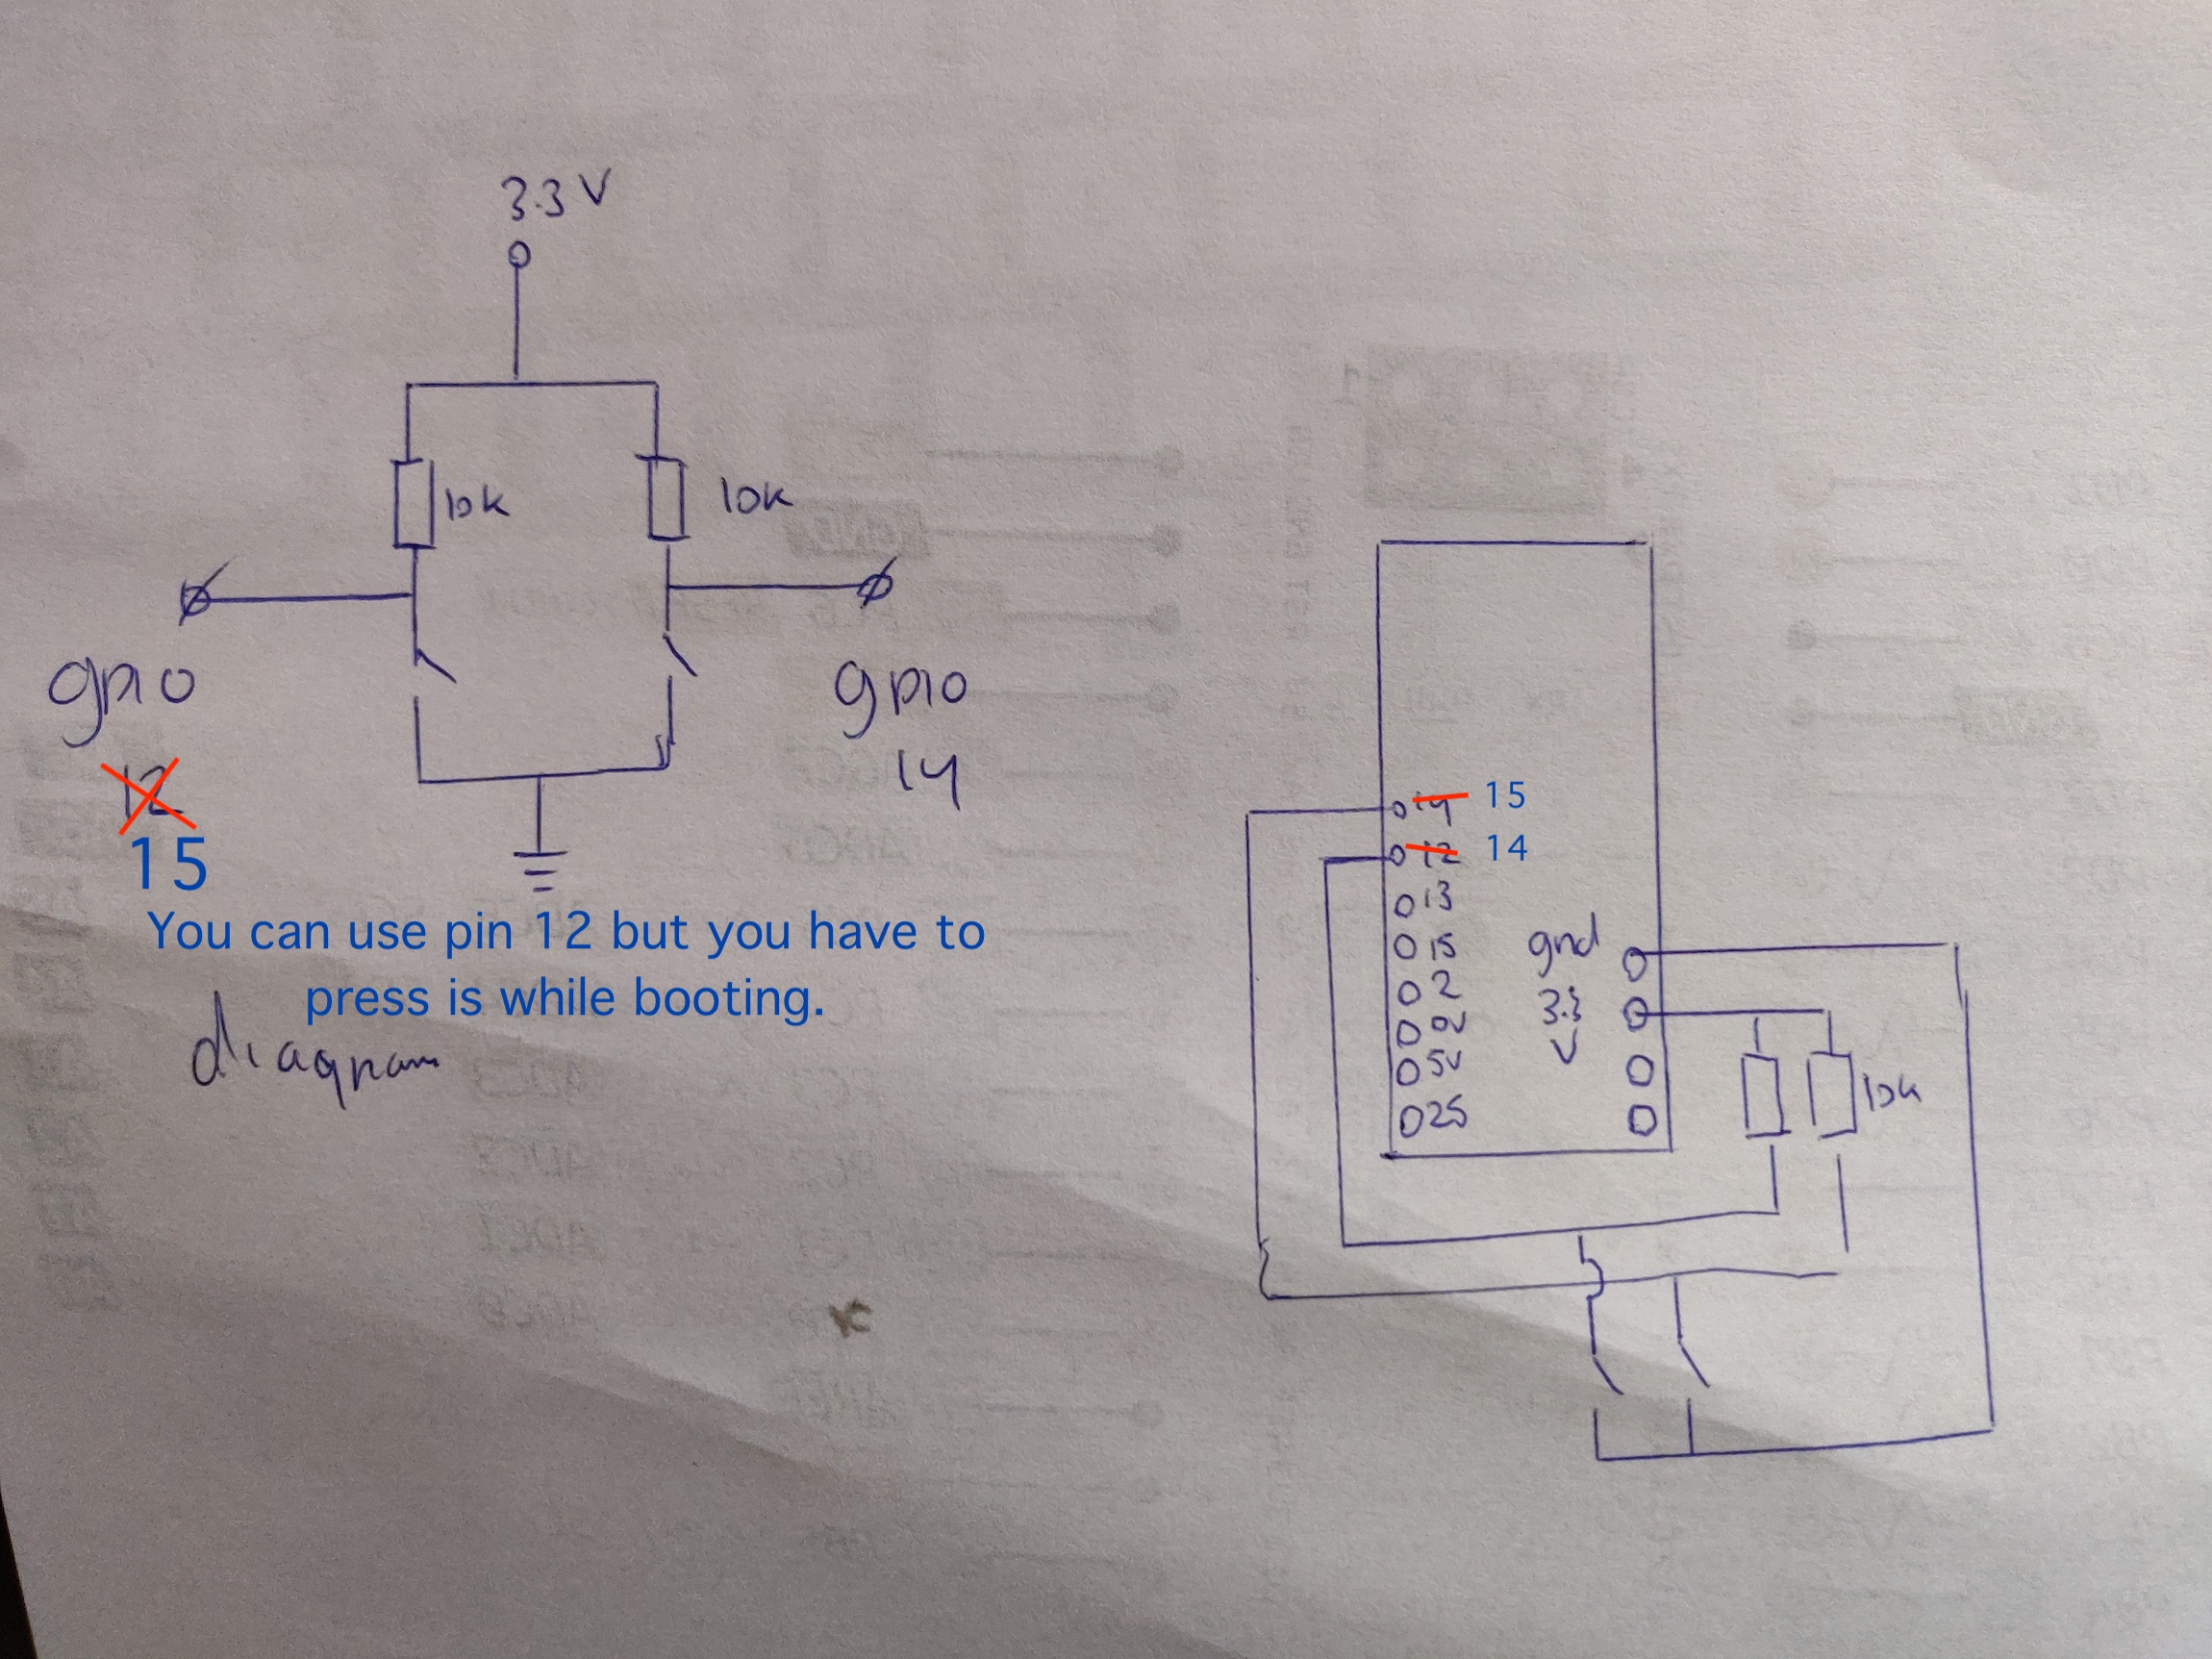 3.3 V
10k
10k
gpio
12
15
gpio
14
You can use pin 12 but you have to
press is while booting.
diagram
14 15
12 14
13
15
2
0V
5V
25
gnd
3.3
V
10k